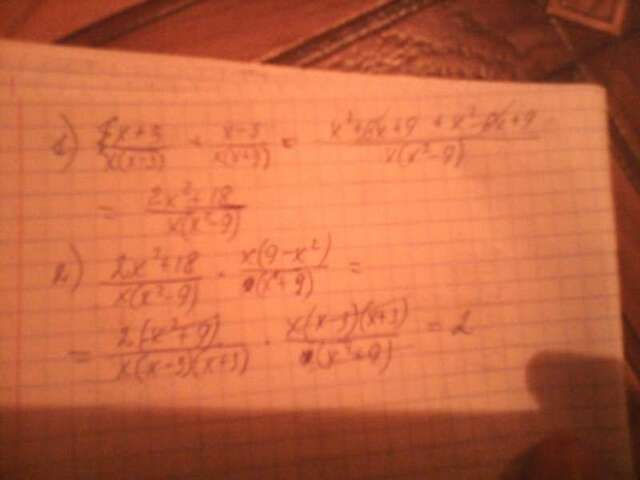 1) x+3/x(x-3) + x-3/x(x+3) = x²+6x+9 + x²-6x+9/x(x²-9)
= 2x²+18/x(x²-9)
2) 2x²+18/x(x²-9) · x(9-x²)/(x²+9) =
= 2(x²+9)/x(x-3)(x+3) · x(x-3)(x+3)/(x²+9) = 2